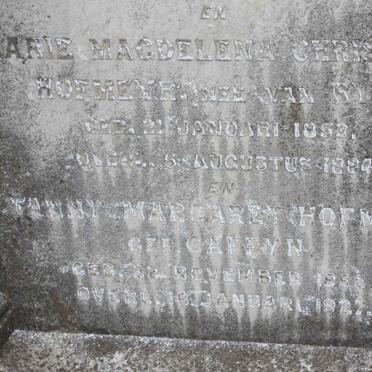 EN
ARIE MAGDELENA CHRIS
HOFMEYR (NEE VAN RY
GEB. 21 JANUARI
OVERL. 5 AUGUSTUS 1884
EN
FANNY MARGARET HOFM
GEB. CAFFYN
GEB. 22 NOVEMBER
OVERL. 18 JANUARI 192